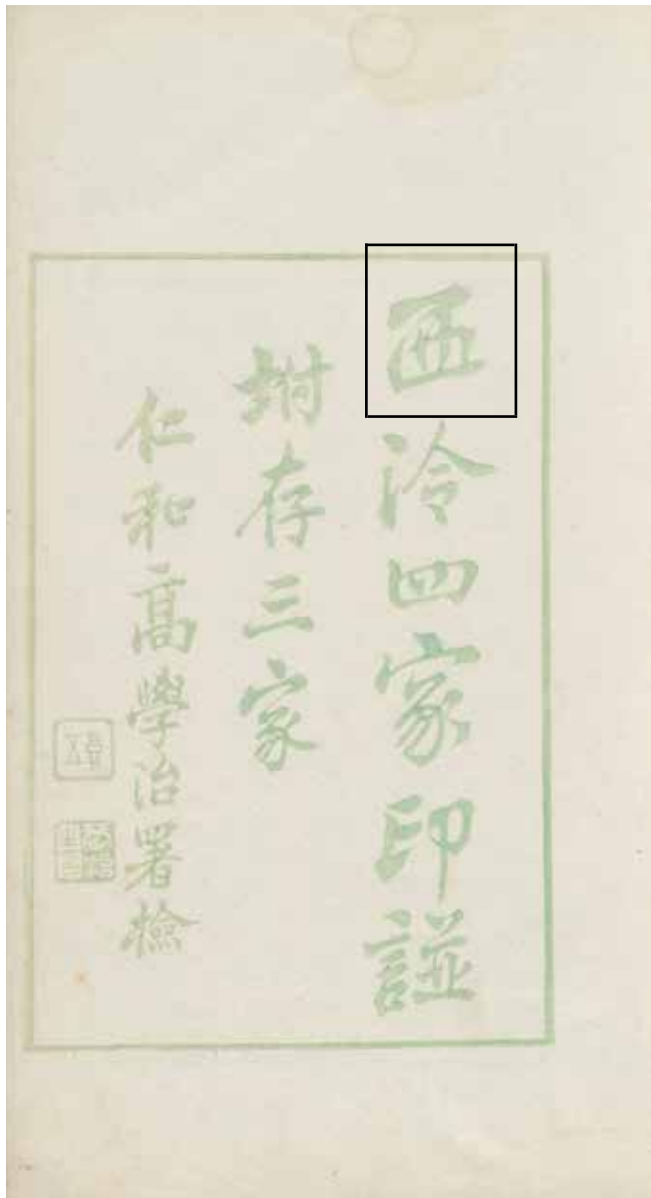 西泠四家印譜
坿存三家
仁和高學治署檢